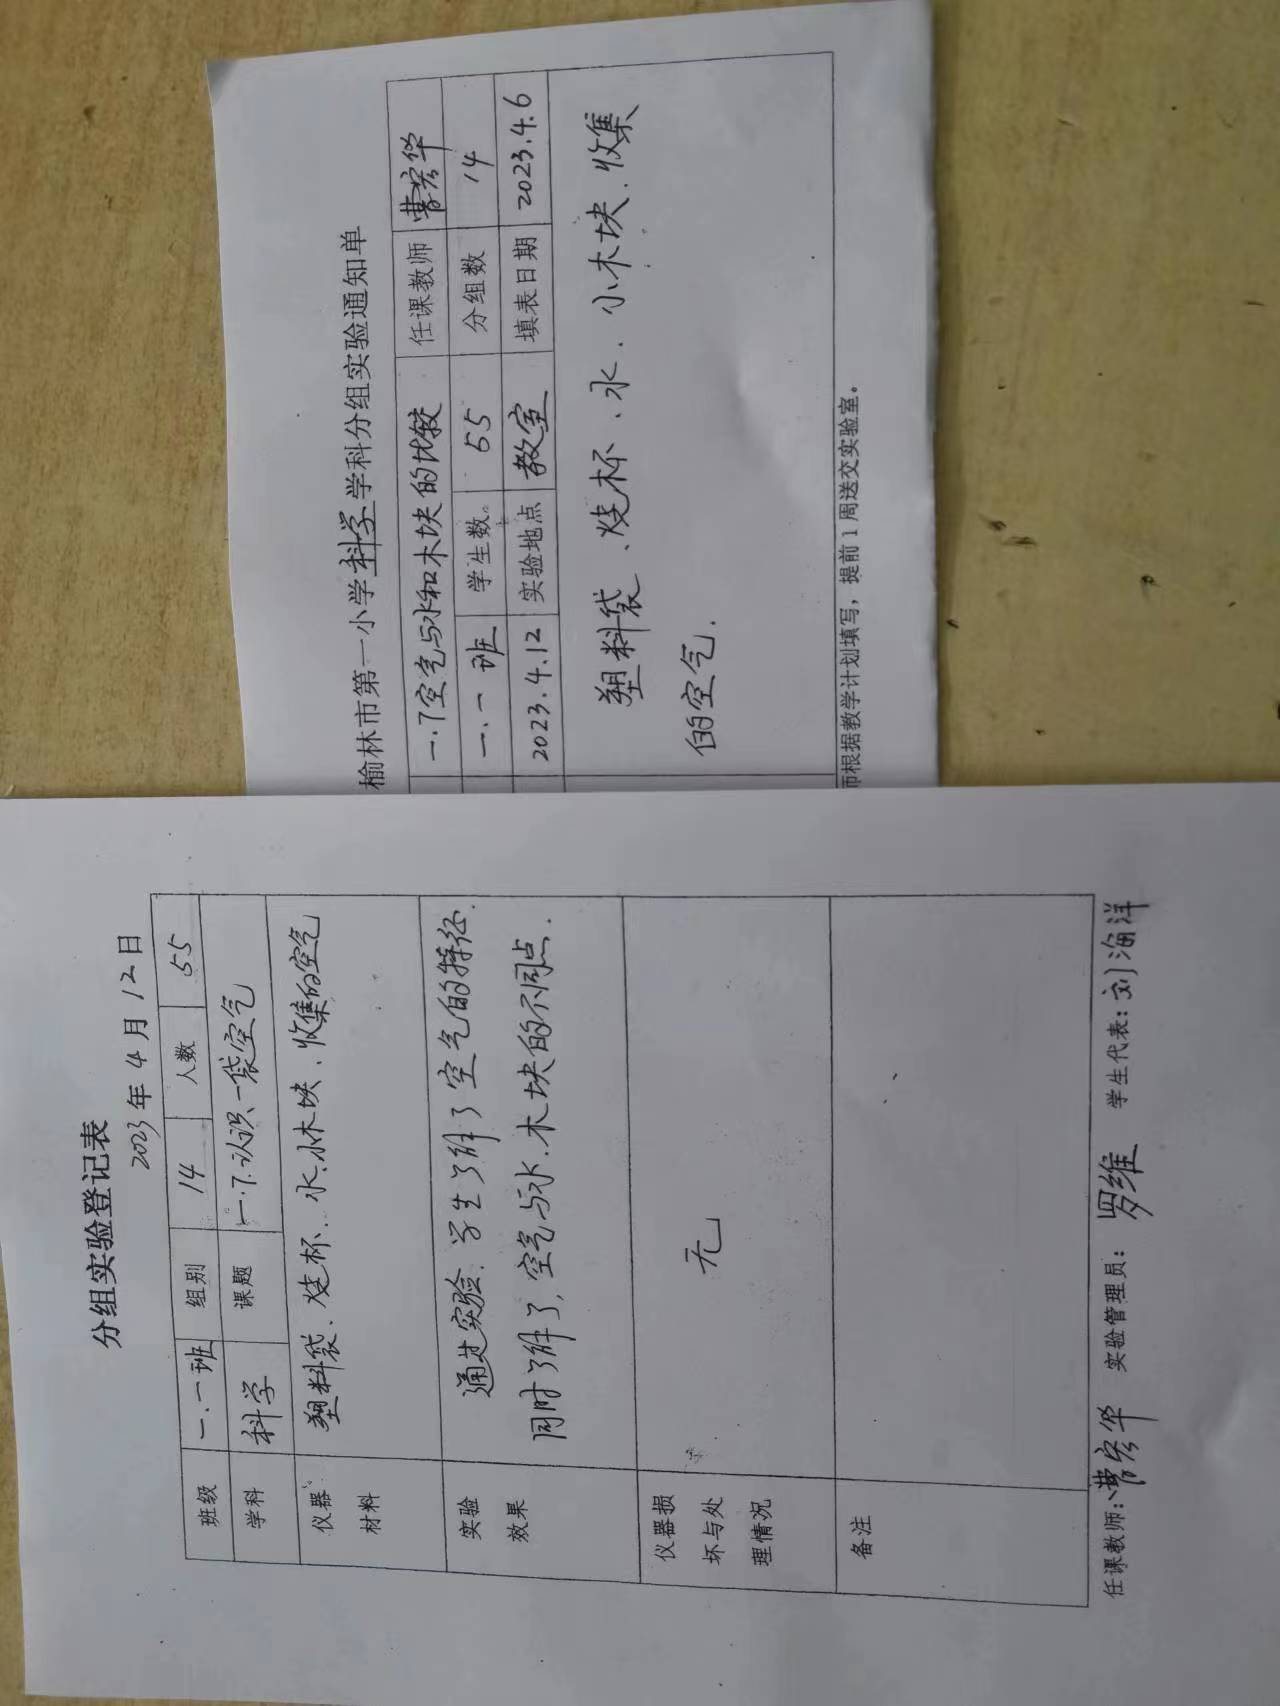 分组实验登记表
2023年4月12日
班级 一.一班 组别 14 人数 55
学科 科学 课题 一.7.认识一袋空气
仪器材料 塑料袋、烧杯、水、小木块、收集的空气
实验效果 通过实验、学生了解了空气的特征.
同时了解了,空气与水.木块的不同点.
仪器损坏与处理情况 无
备注
任课教师:曹宏华 实验管理员:罗维 学生代表:刘海洋
榆林市第一小学科学学科分组实验通知单
一.7空气与水和木块的比较 任课教师 曹宏华
一.一班 学生数 55 分组数 14
2023.4.12 实验地点 教室 填表日期 2023.4.6
塑料袋、烧杯、水、小木块、收集
的空气.
师根据教学计划填写，提前1周送交实验室。